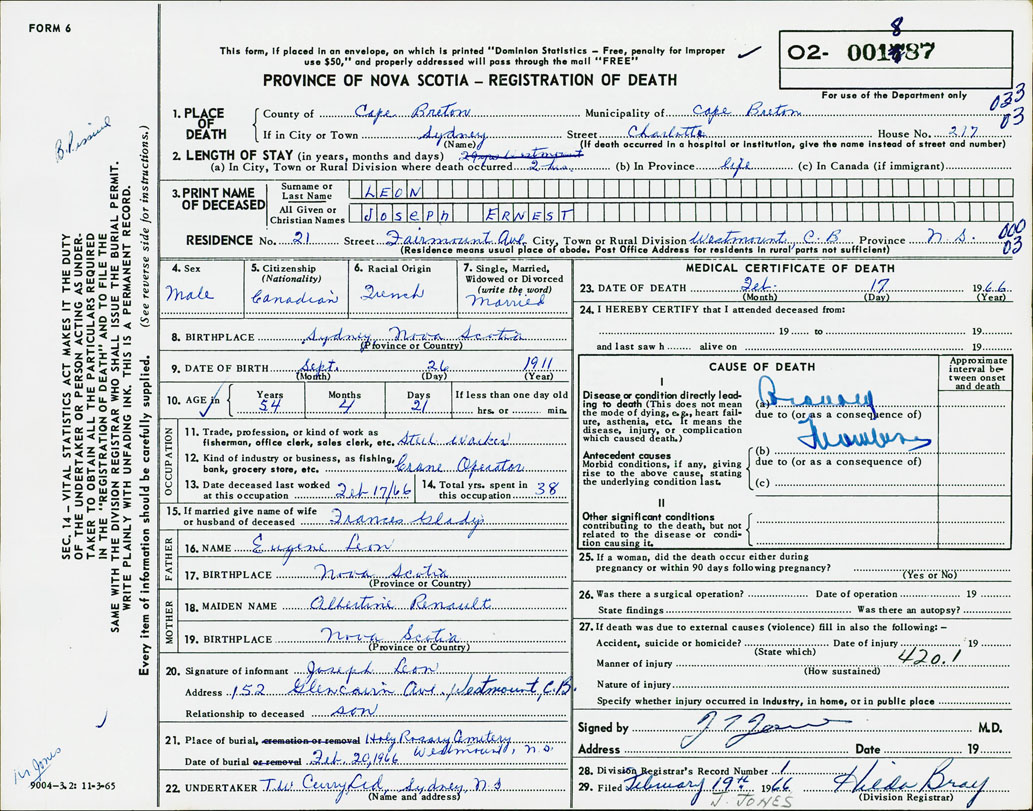 FORM 6
This form, if placed in an envelope, on which is printed "Dominion Statistics – Free, penalty for improper
use $50," and properly addressed will pass through the mail "FREE"
PROVINCE OF NOVA SCOTIA – REGISTRATION OF DEATH
8
O2- 001587
For use of the Department only
033
03
1. PLACE OF DEATH
County of Cape Breton Municipality of Cape Breton
If in City or Town Sydney Street Charlotte House No. 217
(Name) (If death occurred in a hospital or institution, give the name instead of street and number)
2. LENGTH OF STAY (in years, months and days)
(a) In City, Town or Rural Division where death occurred 2 hrs. (b) In Province life (c) In Canada (if immigrant)
3. PRINT NAME OF DECEASED
Surname or Last Name LEON
All Given or Christian Names JOSEPH ERNEST
RESIDENCE No. 21 Street Fairmount Ave. City, Town or Rural Division Westmount, C.B Province N.S.
(Residence means usual place of abode. Post Office Address for residents in rural parts not sufficient)
000
03
4. Sex Male
5. Citizenship (Nationality) Canadian
6. Racial Origin French
7. Single, Married, Widowed or Divorced (write the word) Married
8. BIRTHPLACE Sydney Nova Scotia
(Province or Country)
9. DATE OF BIRTH Sept. 26 1911
(Month) (Day) (Year)
10. AGE in Years 54 Months 4 Days 21 If less than one day old hrs. or min.
OCCUPATION
11. Trade, profession, or kind of work as
fisherman, office clerk, sales clerk, etc. Steel Worker
12. Kind of industry or business, as fishing,
bank, grocery store, etc. Crane Operator
13. Date deceased last worked
at this occupation Feb 17/66
14. Total yrs. spent in
this occupation 38
15. If married give name of wife
or husband of deceased Frances Gladys
FATHER
16. NAME Eugene Leon
17. BIRTHPLACE Nova Scotia
(Province or Country)
MOTHER
18. MAIDEN NAME Albertine Renault
19. BIRTHPLACE Nova Scotia
(Province or Country)
20. Signature of informant Joseph Leon
Address 152 Glencairn Ave., Westmount, C.B.
Relationship to deceased son
21. Place of burial, cremation or removal Holy Rosary Cemetery
Westmount, N.S.
Date of burial or removal Feb. 20, 1966
22. UNDERTAKER T.W. Curry Ltd, Sydney, N.S
(Name and address)
MEDICAL CERTIFICATE OF DEATH
23. DATE OF DEATH Feb. 17 1966
(Month) (Day) (Year)
24. I HEREBY CERTIFY that I attended deceased from:
19 to 19
and last saw h alive on 19
CAUSE OF DEATH
Approximate interval between onset and death
I
Disease or condition directly leading
to death (This does not mean
the mode of dying, e.g., heart failure,
asthenia, etc. It means the
disease, injury, or complication
which caused death.)
(a)
due to (or as a consequence of)
Antecedent causes
Morbid conditions, if any, giving
rise to the above cause, stating
the underlying condition last.
(b)
due to (or as a consequence of)
(c)
II
Other significant conditions
contributing to the death, but not
related to the disease or condition
causing it.
25. If a woman, did the death occur either during
pregnancy or within 90 days following pregnancy?
(Yes or No)
26. Was there a surgical operation? Date of operation 19
State findings Was there an autopsy?
27. If death was due to external causes (violence) fill in also the following: –
Accident, suicide or homicide? Date of injury 19
(State which)
420.1
Manner of injury
(How sustained)
Nature of injury
Specify whether injury occurred in industry, in home, or in public place
Signed by M.D.
Address Date 19
28. Division Registrar's Record Number 1
29. Filed February 19th 1966 Hilda Bray
J. JONES (Division Registrar)
SEC. 14 – VITAL STATISTICS ACT MAKES IT THE DUTY
OF THE UNDERTAKER OR PERSON ACTING AS UNDERTAKER
TO OBTAIN ALL THE PARTICULARS REQUIRED
IN THE "REGISTRATION OF DEATH" AND TO FILE THE
SAME WITH THE DIVISION REGISTRAR WHO SHALL ISSUE THE BURIAL PERMIT.
WRITE PLAINLY WITH UNFADING INK. THIS IS A PERMANENT RECORD.
Every item of information should be carefully supplied. (See reverse side for instructions.)
9004–3.2: 11-3-65